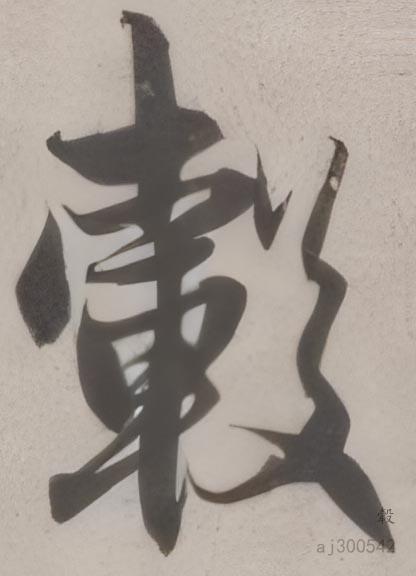 轂
轂
aj300542